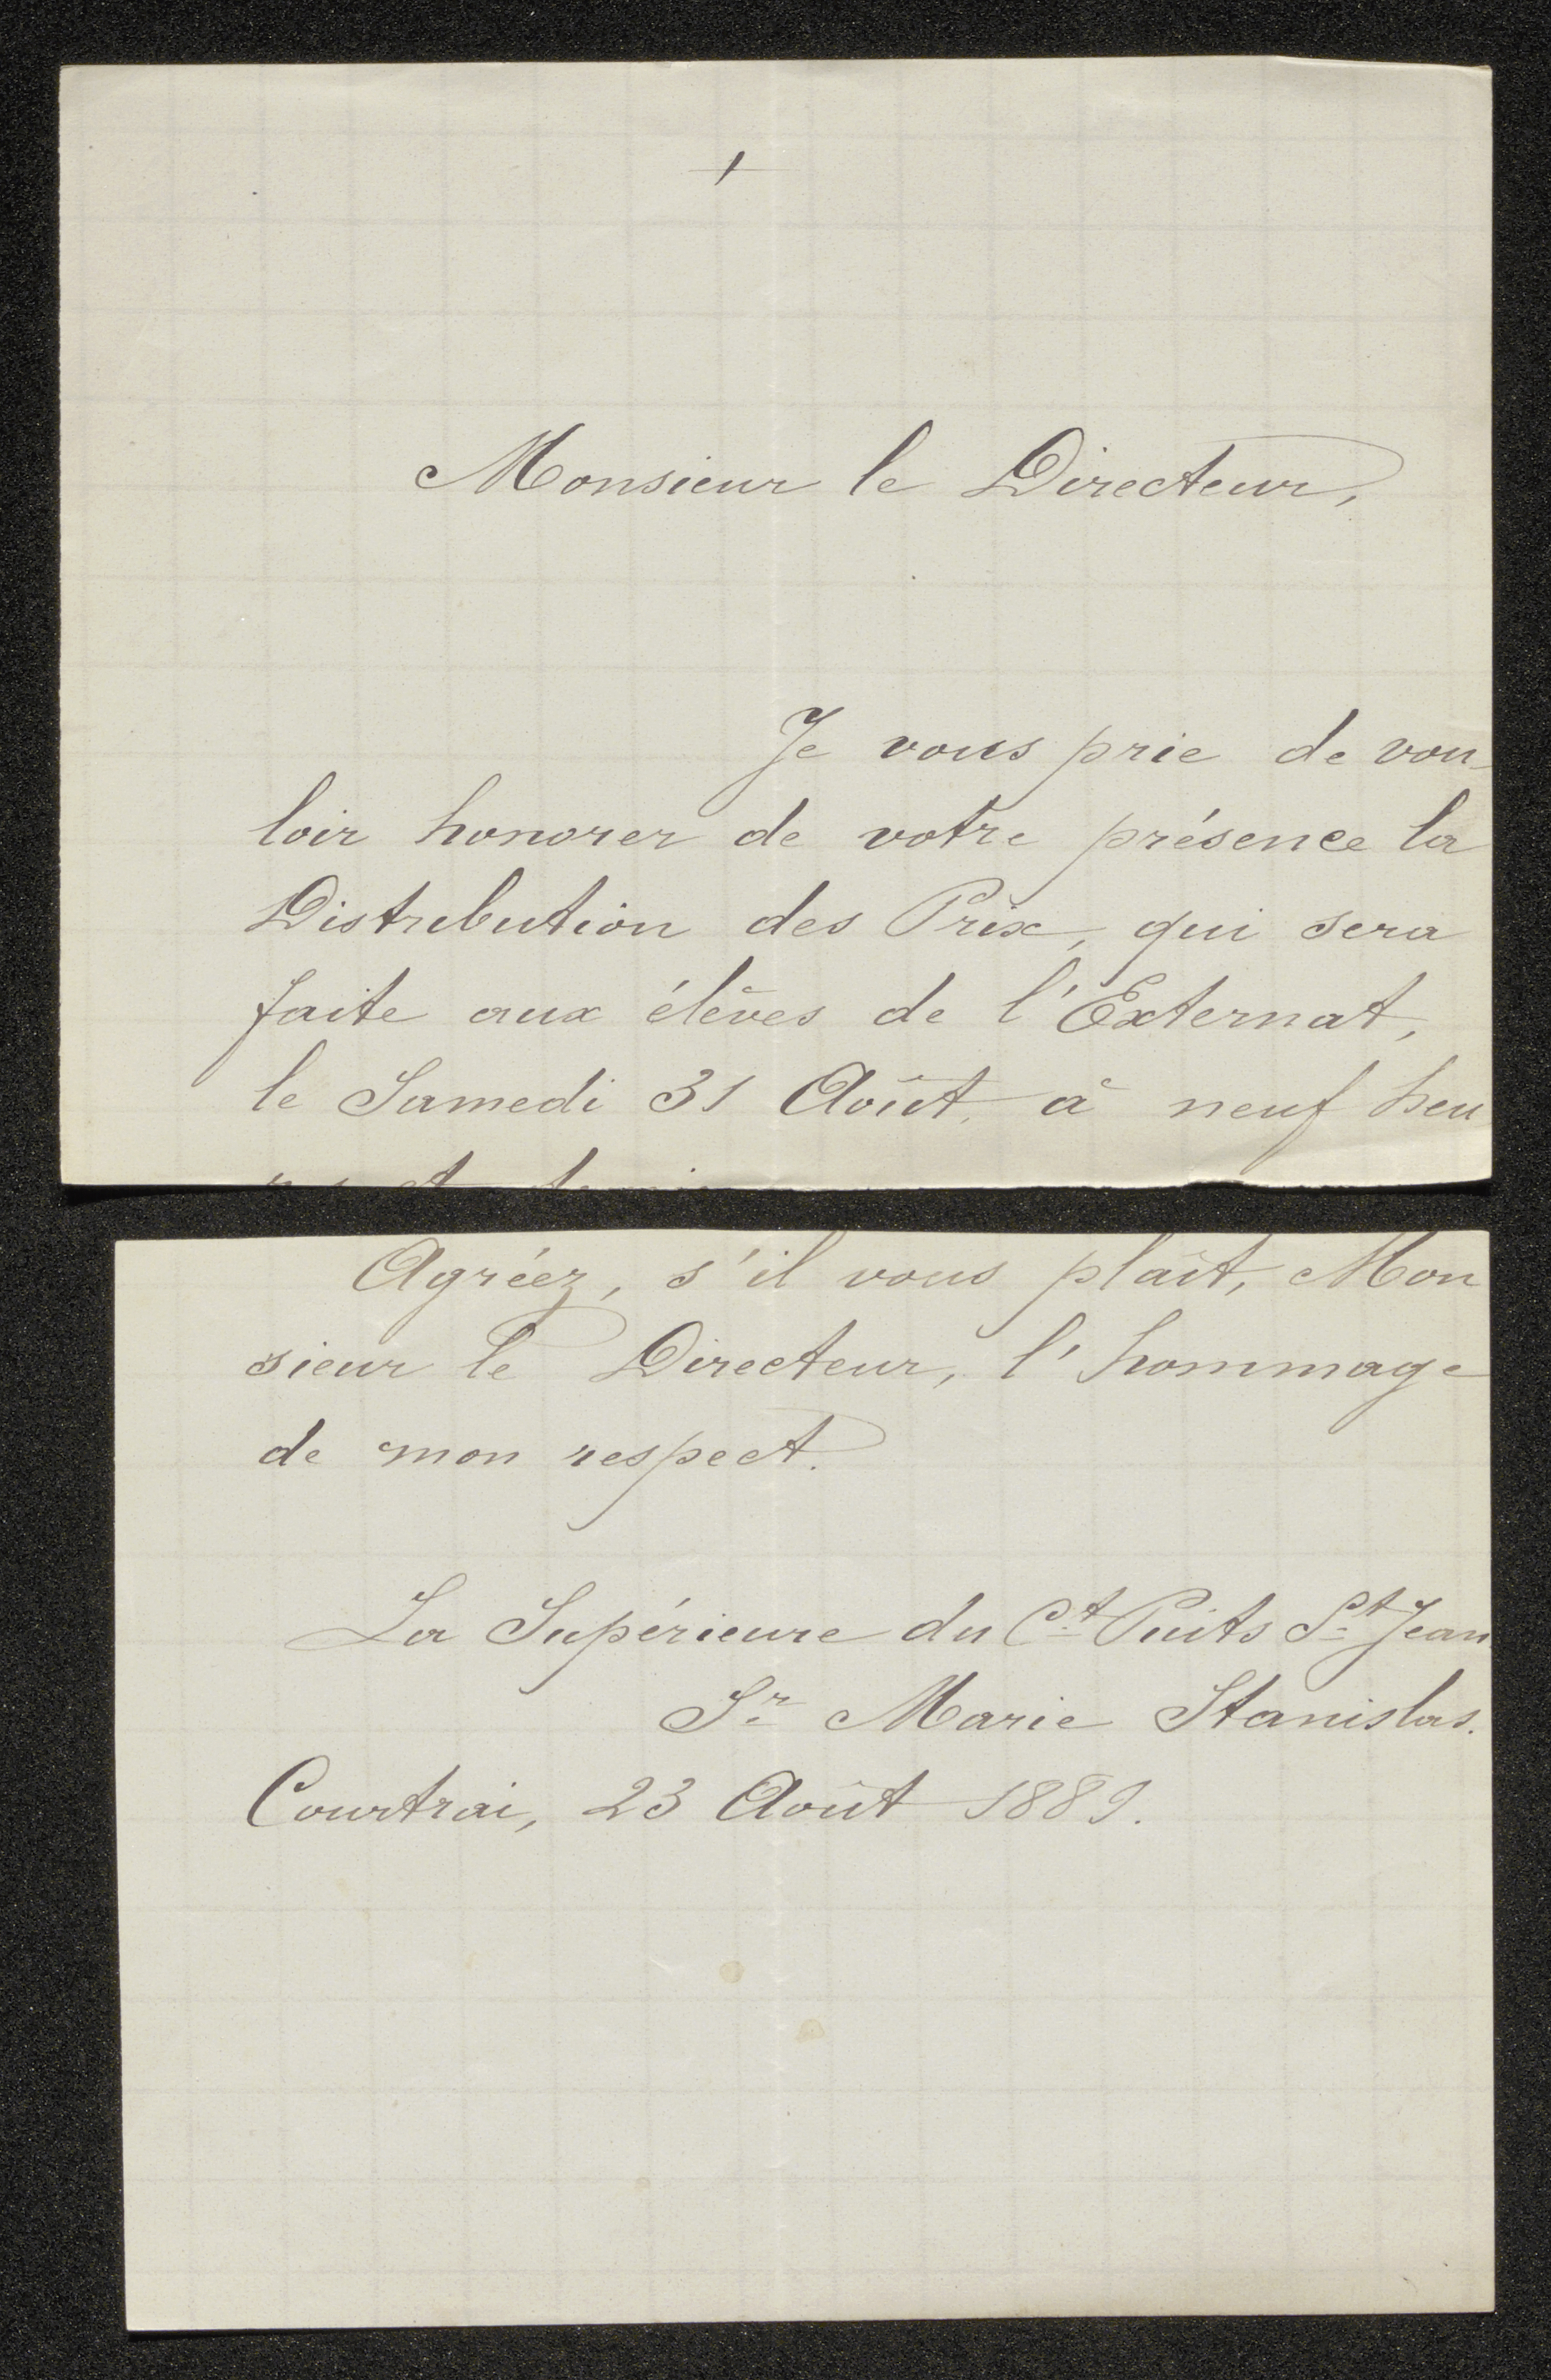 +
Monsieur le Directeur,
Je vous prie de vou-
loir honorer de votre présence la
Distribution des Prix, qui sera
faite aux élèves de l'Externat,
le Samedi 31 Août, à neuf heu
res et demie
Agréez, s'il vous plaît, Mon
sieur le Directeur, l'hommage
de mon respect.
La Supérieure du Ct Puits St Jean
Sr Marie Stanislas.
Courtrai, 23 Août 1889.